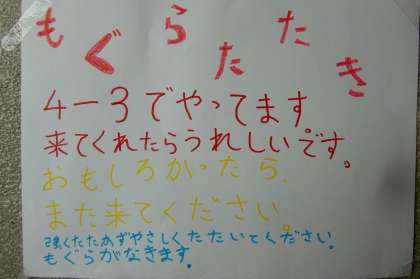 もぐらたたき
4-3でやってます
来てくれたらうれしいです。
おもしろかったら、
また来てください。
強くたたかずやさしくたたいてください。
もぐらがなきます。